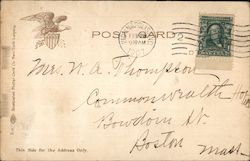 POST CARD
Mrs. W. A. Thompson
Commonwealth Hotel
Bowdoin St.
Boston
Mass
This Side for the Address Only.